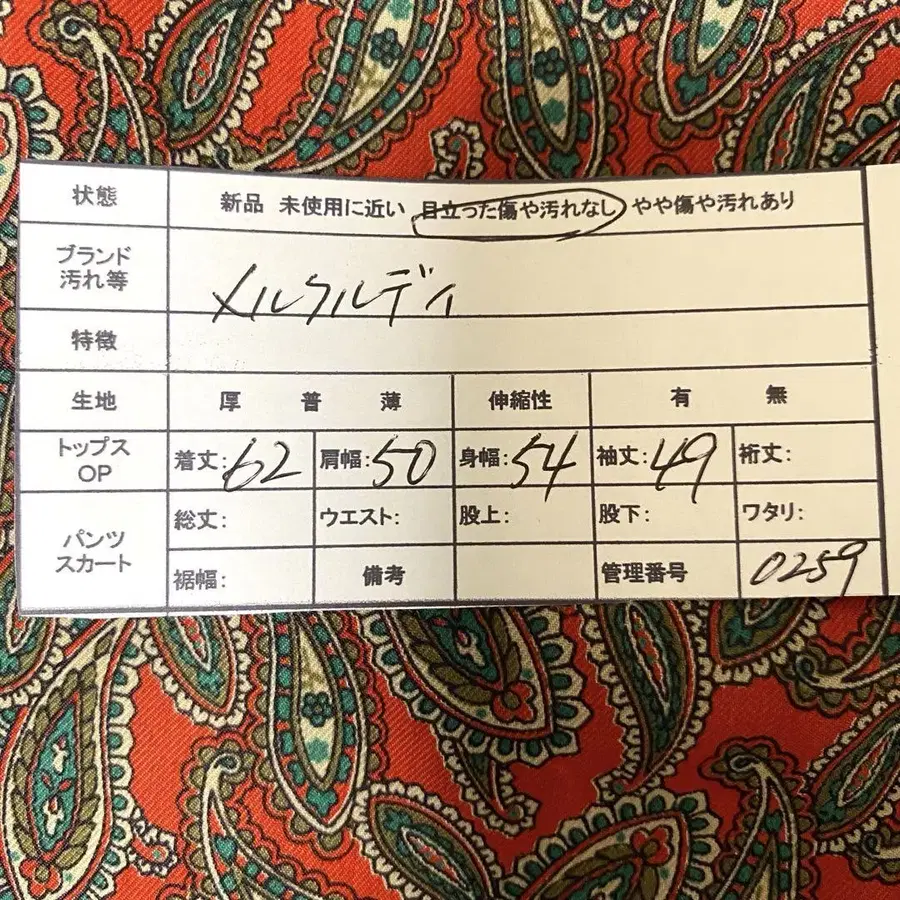 状態 新品 未使用に近い 目立った傷や汚れなし やや傷や汚れあり
ブランド
汚れ等
メルクルディ
特徴
生地 厚 普 薄 伸縮性 有 無
トップス
OP
着丈:62 肩幅:50 身幅:54 袖丈:49 裄丈:
パンツ
スカート
総丈: ウエスト: 股上: 股下: ワタリ:
裾幅: 備考 管理番号 0259